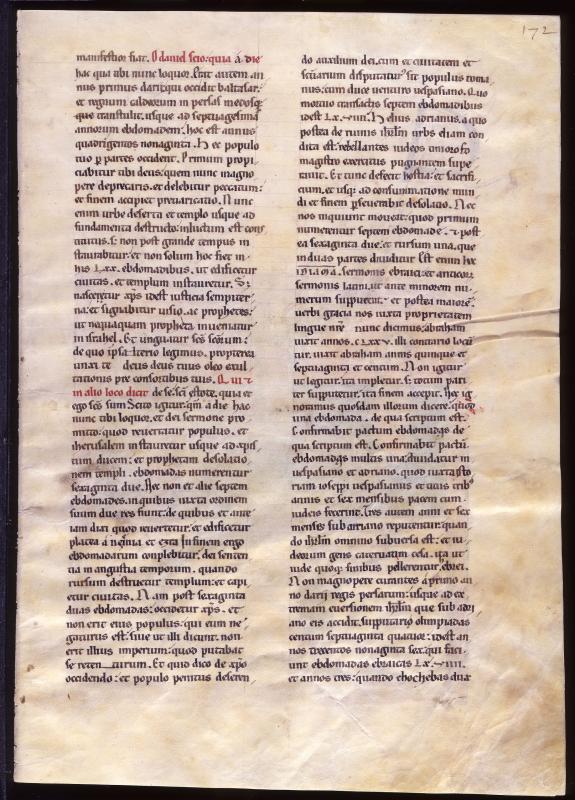 172
manifestior fiat. O daniel scio: quia a die
hac qua tibi nunc loquor. Erat autem an
nus primus darii: qui occidit baltasar:
et regnum caldeorum in persas medosq;
que transtulit. usque ad septuagesima
annorum ebdomadem: hoc est annus
quadrigentos nonaginta. Hec populo
tuo p partes occident. Primum propi
ciabitur tibi deus: quem nunc magno
pere deprecaris. et delebitur peccatum:
et finem accipiet prevaricatio. Nunc
enim urbe deserta et templo usque ad
fundamenta destructo: in luctum est cons
titutus. s: non post grande tempus in
staurabitur. et non solum hoc fiet in
his Lxx. ebdomadibus. ut edificetur
civitas. et templum instauretur. S;
nascetur xp̄s idest iusticia sempiter
na: et signabitur visio. ac prophetes:
ut nequaquam propheta inveniatur
in israhel. Et unguatur sc̄s sc̄orum:
de quo in psalterio legimus. propterea
unxi te deus deus tuus oleo exul
tationis pre consortibus tuis. Qui &
in alio loco dicit de se. sc̄i estote. quia et
ego sc̄s sum Scito igitur: qm̄ a die hac
nunc tibi loquor. et dei sermone pro
mitto: quod revertatur populus. et
iherusalem instauretur usque ad xp̄m
tum ducem: et prophetam desolatio
nem templi. ebdomadas numerentur
sexaginta due. Nec non et alie septem
ebdomades. in quibus iuxta ordinem
suum due res fiunt: de quibus et ante
iam dixi quod revertetur: et edificetur
platea a neemia et ezra In finem ergo
ebdomadarum conplebitur. dei senten
tia in angustia temporum. quando
rursum destruetur templum: et capi
etur civitas. Nam post sexaginta
duas ebdomadas: occidetur xp̄s. et
non erit eius populus: qui eum ne
gaturus est. sive ut illi dicunt. non
erit illius imperium: quod putabat
se reten turum. Et quid dico de xp̄o
occidendo: et populo penitus deseren
do auxilium dei. cum et civitatem et
sc̄uarium disputatur sit populus roma
nus. cum duce venturo vespasiano. Quo
mortuo transactis septem ebdomadibus
idest Lx. viiii. Helius adrianus. a quo
postea de ruinis ihrl̄m urbs eliam con
dita est: rebellantes iudeos timoro fo
magistro exercitus pugnantem supe
ravit. Et tunc defecit hostia: et sacrifi
cium. et usq; ad consummatione mun
di et finem pseverabit desolatio. Nec
nos inquiunt moveat: quod primum
numerentur septem ebdomade. & post
ea sexaginta due. et rursum una. que
in duas partes dividitur Est enim hec
sermonis ebraici: et anticor
sermonis latini. ut ante minorem nu
merum supputent. et postea maiorē.
verbi gracia nos iuxta proprietatem
lingue nr̄e nunc dicimus: abraham
vixit annos. cLxxv. illi contario locū
tur. vixit abraham annis quinque et
septuaginta et centum. Non igitur
ut legitur. ita impletur. s: totum pari
ter supputetur. ita finem accepit. Nec ig
noramus quosdam illorum dicere. quod
una ebdomada. de qua scriptum est.
Confirmabit pactum ebdomadas de
qua scriptum est. Confirmabit pactū
ebdomadas multis una: dividatur in
vespasiano et adriano. quod iuxta isto
riam iosepi vespasianus et titus trib;
annis et sex mensibus pacem cum
iudeis fecerint. Tres autem anni et sex
menses sub arriano reputentur: quan
do ihrl̄m omnino subversa est: et iu
deorum gens catervatim cesa. ita ut
iude quoq; finibus pellerentur. ebrei.
Non magnopere curantes a primo an
no darii regis persarum: usque ad ex
tremam eversionem ihrl̄m que sub adri
ano eis accidit. supputatio olimpiadas
centum septuaginta quatuor: idest an
nos trecentos nonaginta sex. qui faci
unt ebdomadas ebraicas Lx. viiii.
et annos tres: quando chochebas dux